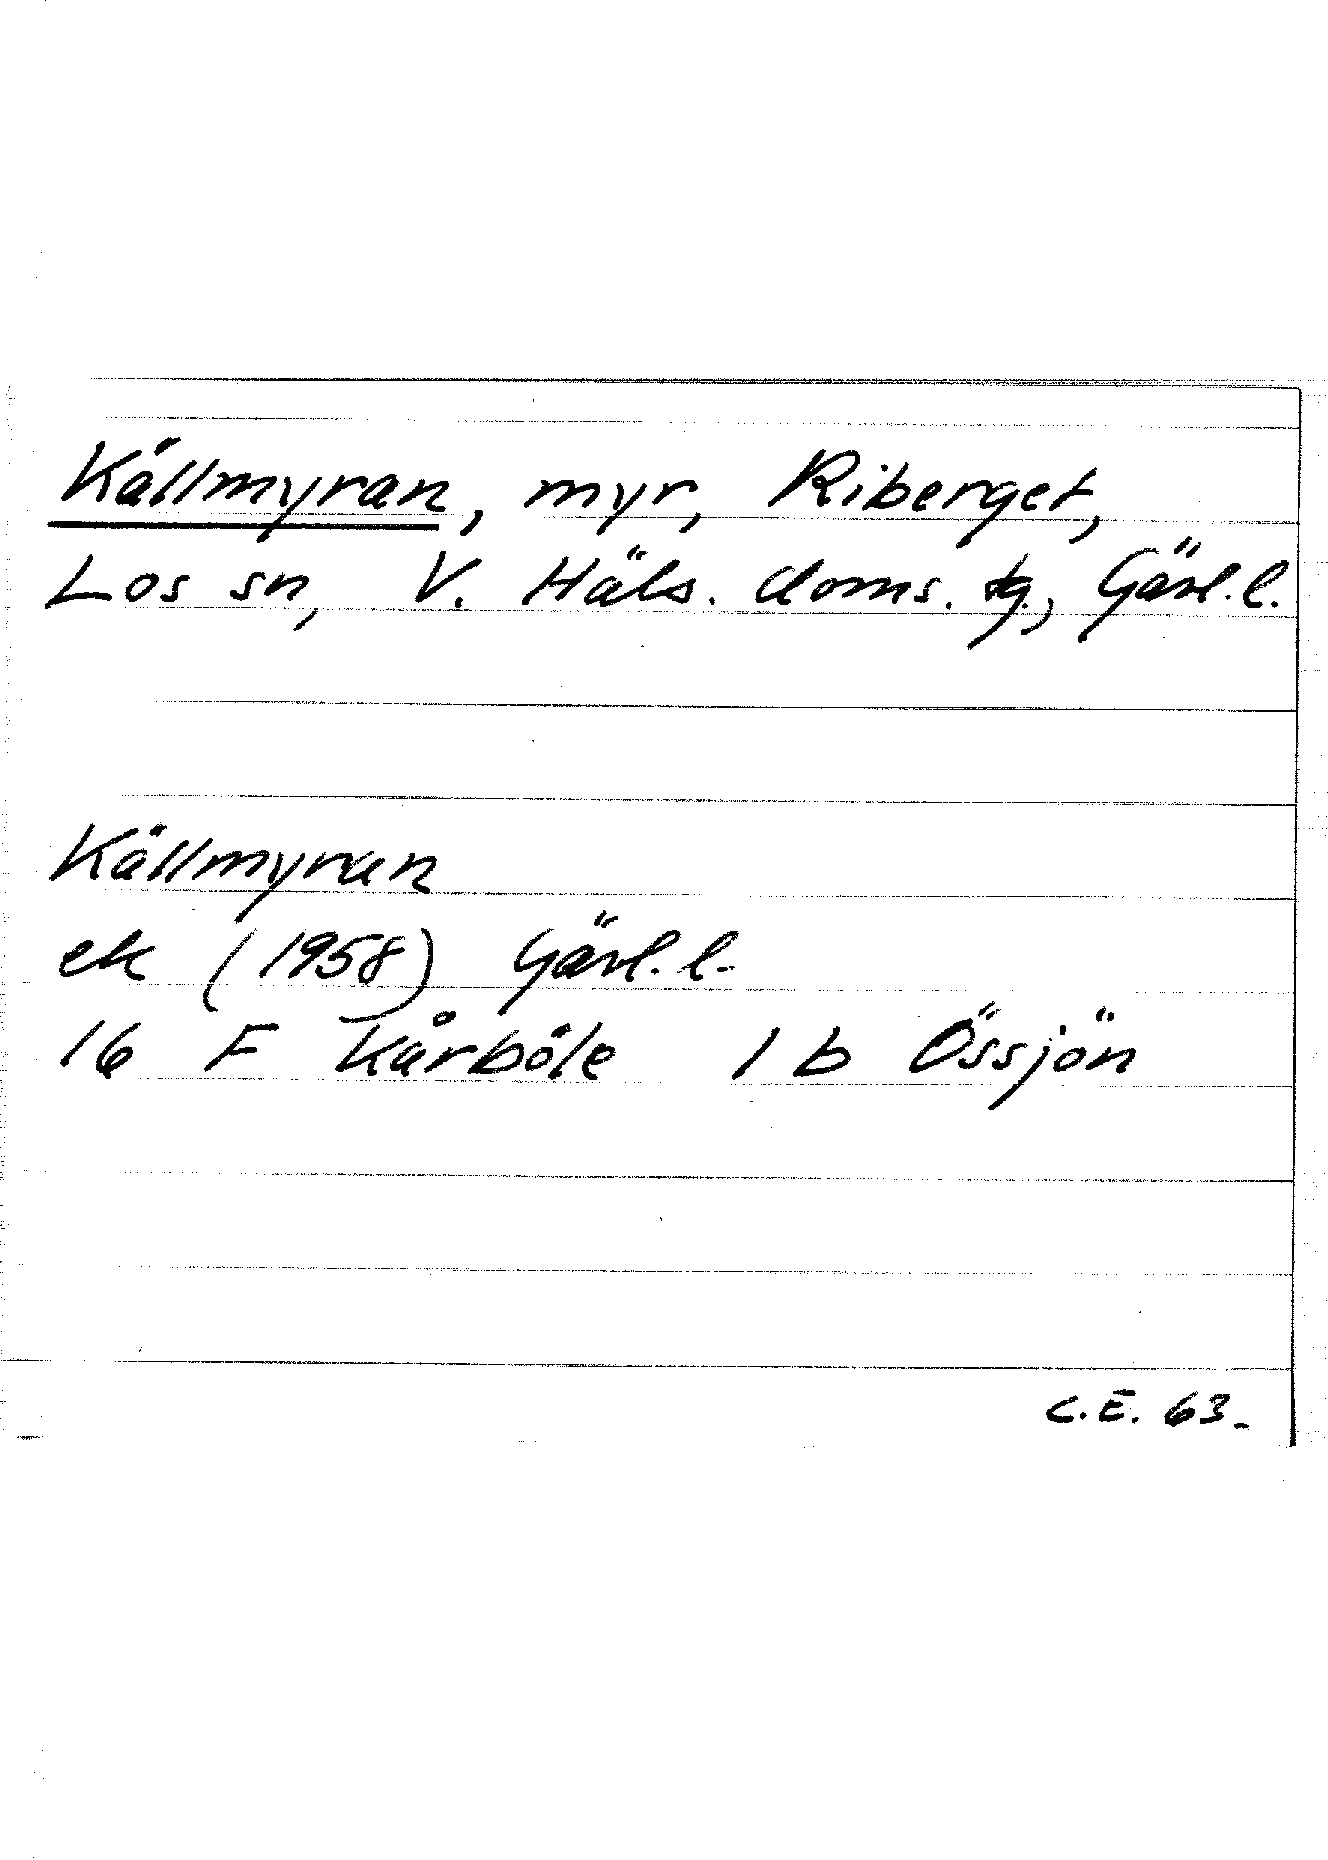 Källmyran, myr, Riberget,
Los sn, V. Häls. doms. tg., Gävl. l.
Källmyran
ek (1958) Gävl. l.
16 F Kårböle 1 b Össjön
C.E. 63.